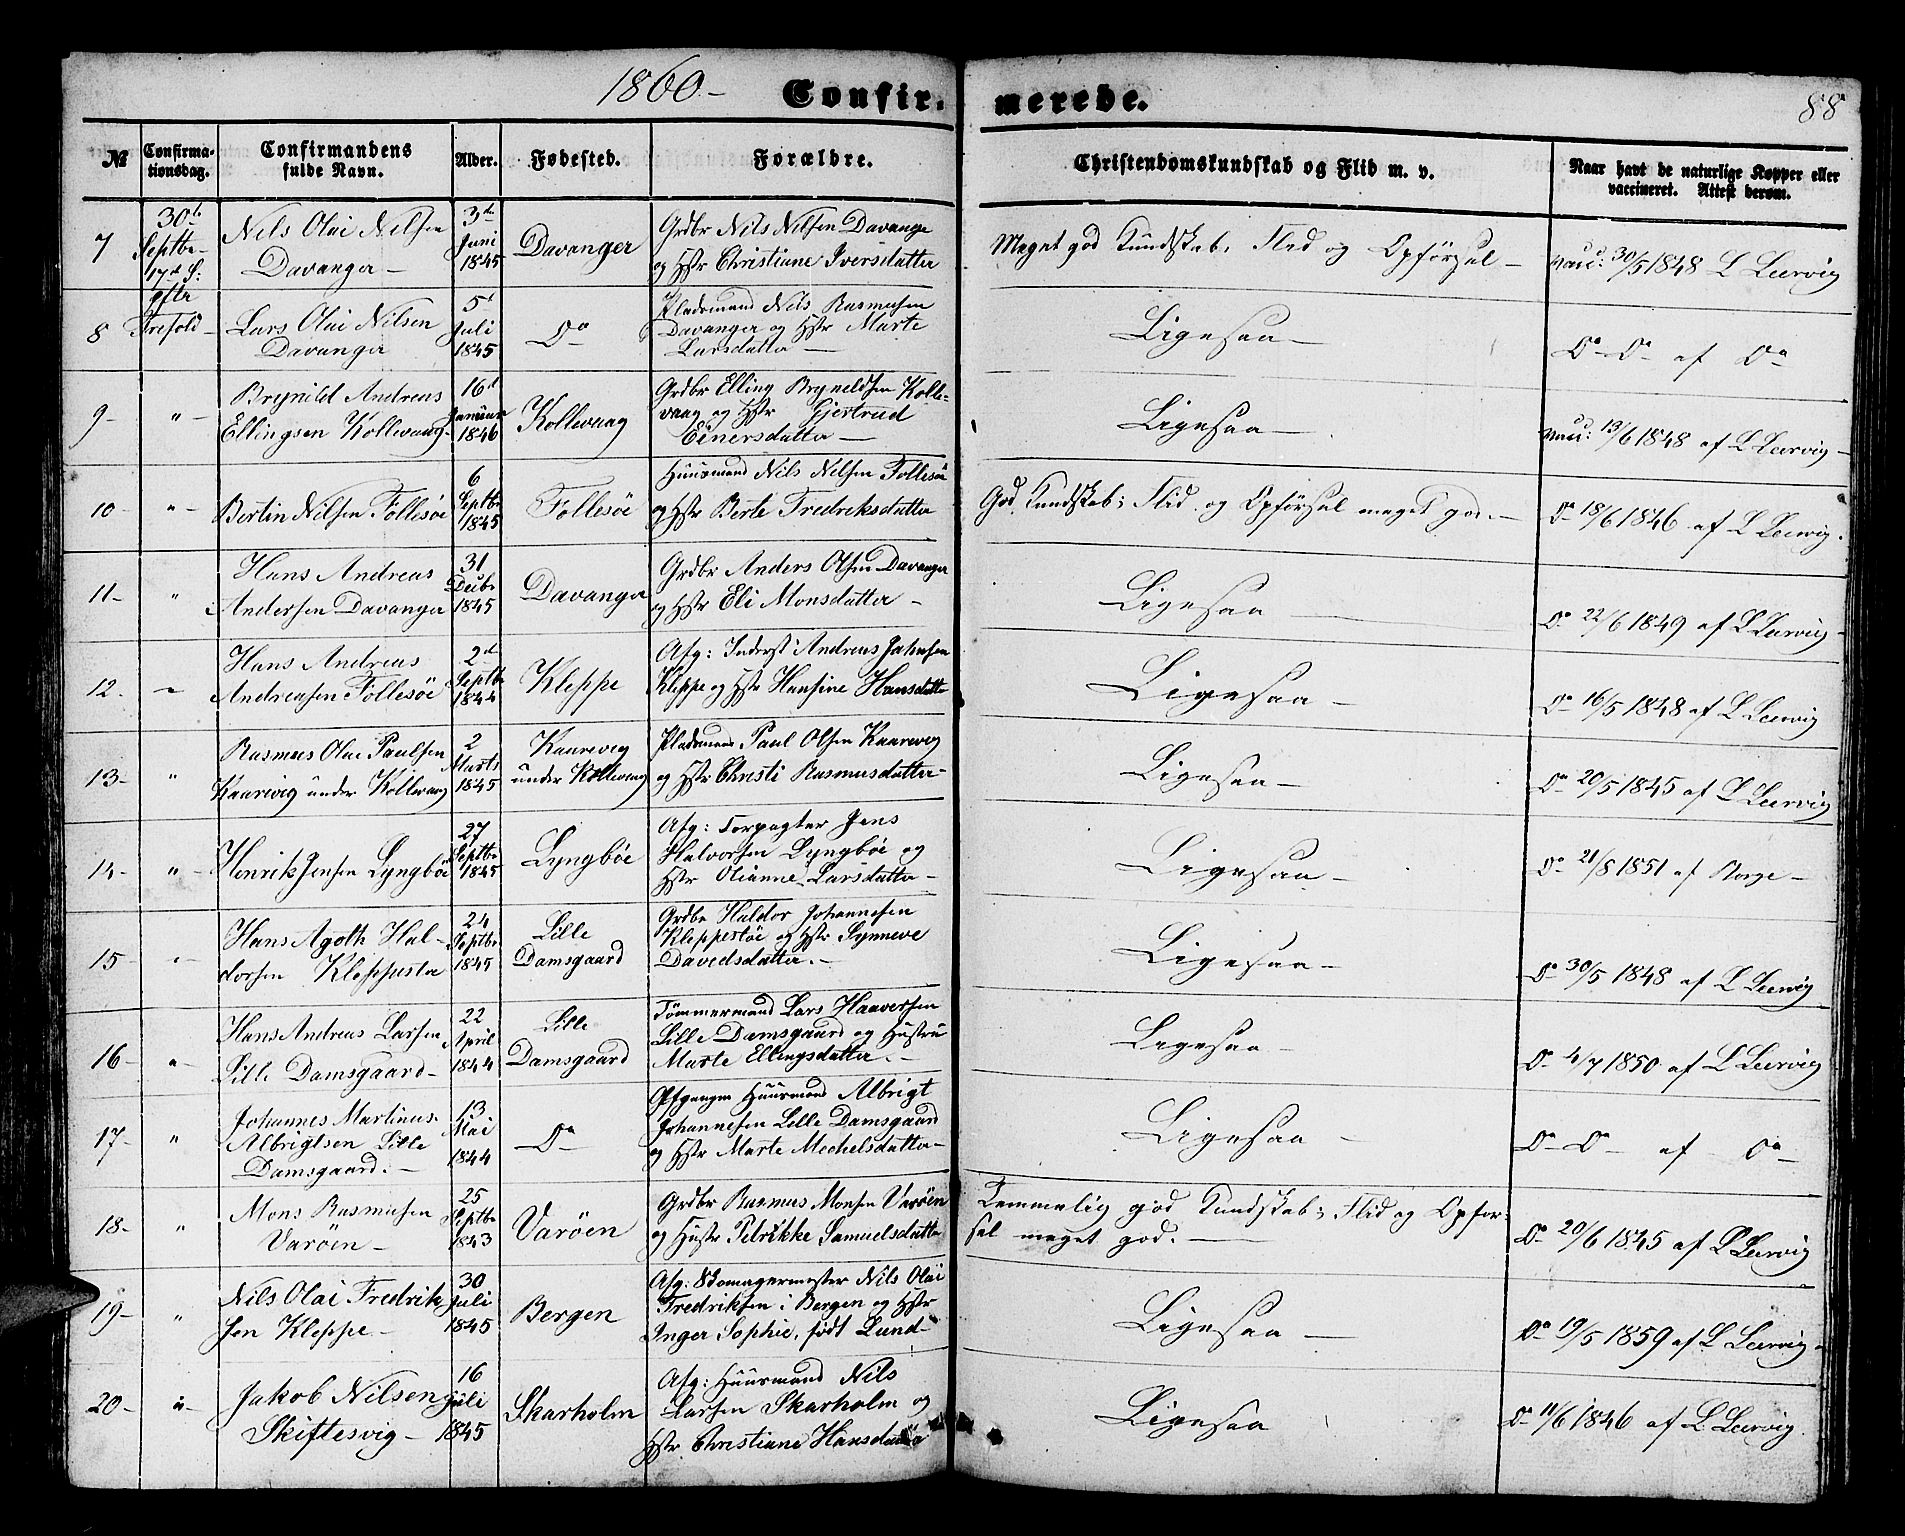 1860-
Confirmerede.
88
№
Confirmationsdag.
Confirmandens fulde Navn.
Alder.
Fødested.
Forældre.
Christendomskundskab og Flid m. v.
Naar havt de naturlige Kopper eller vaccineret. Attest derom.
7
30te Septbr 17de S: efter Trefold-
Nils Olai Nilsen
Davanger -
3de Juni 1845
Davanger
Grdbr Nils Nilsen Davange
og Hstr Christiane Iversdatter
Meget god Kundskab, Flid og Opførsel -
vacc: 30/5 1848 L Leervig
8
Lars Olai Nilsen
Davanger
5t Juli 1845
Do
Pladsmand Nils Rasmusen
Davanger og Hstr Marte
Larsdatter -
Ligesaa -
Do - Do - af Do
9-
" -
Brynild Andreas
Ellingsen Kollevaag-
16d Januar 1846
Kollevaag
Grdbr Elling Bryneldsen Kolle-
vaag og Hstr Gjertrud
Einersdatter -
Ligesaa -
vacc: 13/6 1848 af L Leervig -
10-
" -
Bertin Nilsen Follesøe
6 Septbr 1845
Follesøe
Huusmand Nils Nilsen Follesøe
og Hstr Berte Fredriksdatter
God Kundskab; Flid og Opførsel meget god. -
Do 18/6 1846 af L Leervig.
11-
"
Hans Andreas
Andersen Davanger
31 Decbr 1845
Davanger
Grdbr Anders Olsen Davanger
og Hstr Eli Monsdatter -
Ligesaa -
Do 22/6 1849 af L Leervig -
12.
"
Hans Andreas
Andreasen Follesøe
2d Septbr 1844
Kleppe
Afg: Inderst Andreas Johnsen
Kleppe og Hstr Hansine Hansdatter
Ligesaa -
Do 16/5 1848 af L Leervig
13-
"
Rasmus Olai Paulsen
Kaarevig under Kollevaag
2 Marts 1845
Kaarevig
under Kollevaag
Pladsmand Paul Olsen Kaarevig
og Hstr Christi Rasmusdatter -
Ligesaa -
Do 20/5 1845 af L Leervig
14-
" -
Henrik Jensen Lyngbøe
27 Septbr 1845
Lyngbøe
Afg: Forpagter Jens
Halvorsen Lyngbøe og
Hstr Olianne Larsdatter -
Ligesaa -
Do 21/8 1851 af -
15
" -
Hans Agoth Hal-
dorsen Kleppestø
24 Septbr 1845
Lille
Damsgaard
Grdbr Haldor Johannesen
Kleppestøe og Hstr Synneve
Davidsdatter. -
Ligesaa -
Do 30/5 1848 af L Leervig
16-
" -
Hans Andreas Larsen
Lille Damsgaard -
22 April 1844
Lille
Damsgaard
Tømmermand Lars Haaversen
Lille Damsgaard og Hustru
Marte Ellingsdatter. -
Ligesaa -
Do 4/7 1850 af L Leervig
17-
"
Johannes Martinus
Albrigtsen Lille
Damsgaard. -
13 Mai 1844
Do
Afgangen Huusmand Albrigt
Johannesen Lille Damsgaard
og Hstr Marte Mechelsdatter -
Ligesaa -
Do - Do - af - Do
18-
"
Mons Rasmusen
Varøen -
25 Septbr 1843
Varøen
Grdbr Rasmus Monsen Varøen
og Hustr Petrikke Samuelsdatter
Temmelig god Kundskab; Flid og Opfør-
sel meget god. -
Do 20/6 1845 af L Leervig
19-
"
Nils Olai Fredrik-
sen Kleppe -
30 Juli 1845
Bergen
Afg: Skomagermester Nils Olai
Fredriksen i Bergen og Hstr
Inger Sophie, født Lund-
Ligesaa -
Do 19/5 1859 af L Leervig -
20-
" -
Jakob Nilsen
Skiftesvig -
16 Juli 1845
Skarholm
Afg: Huusmand Nils
Larsen Skarholm og
Hstr Christiane Hansdatter
Ligesaa
Do 11/6 1846 af L Leervig.